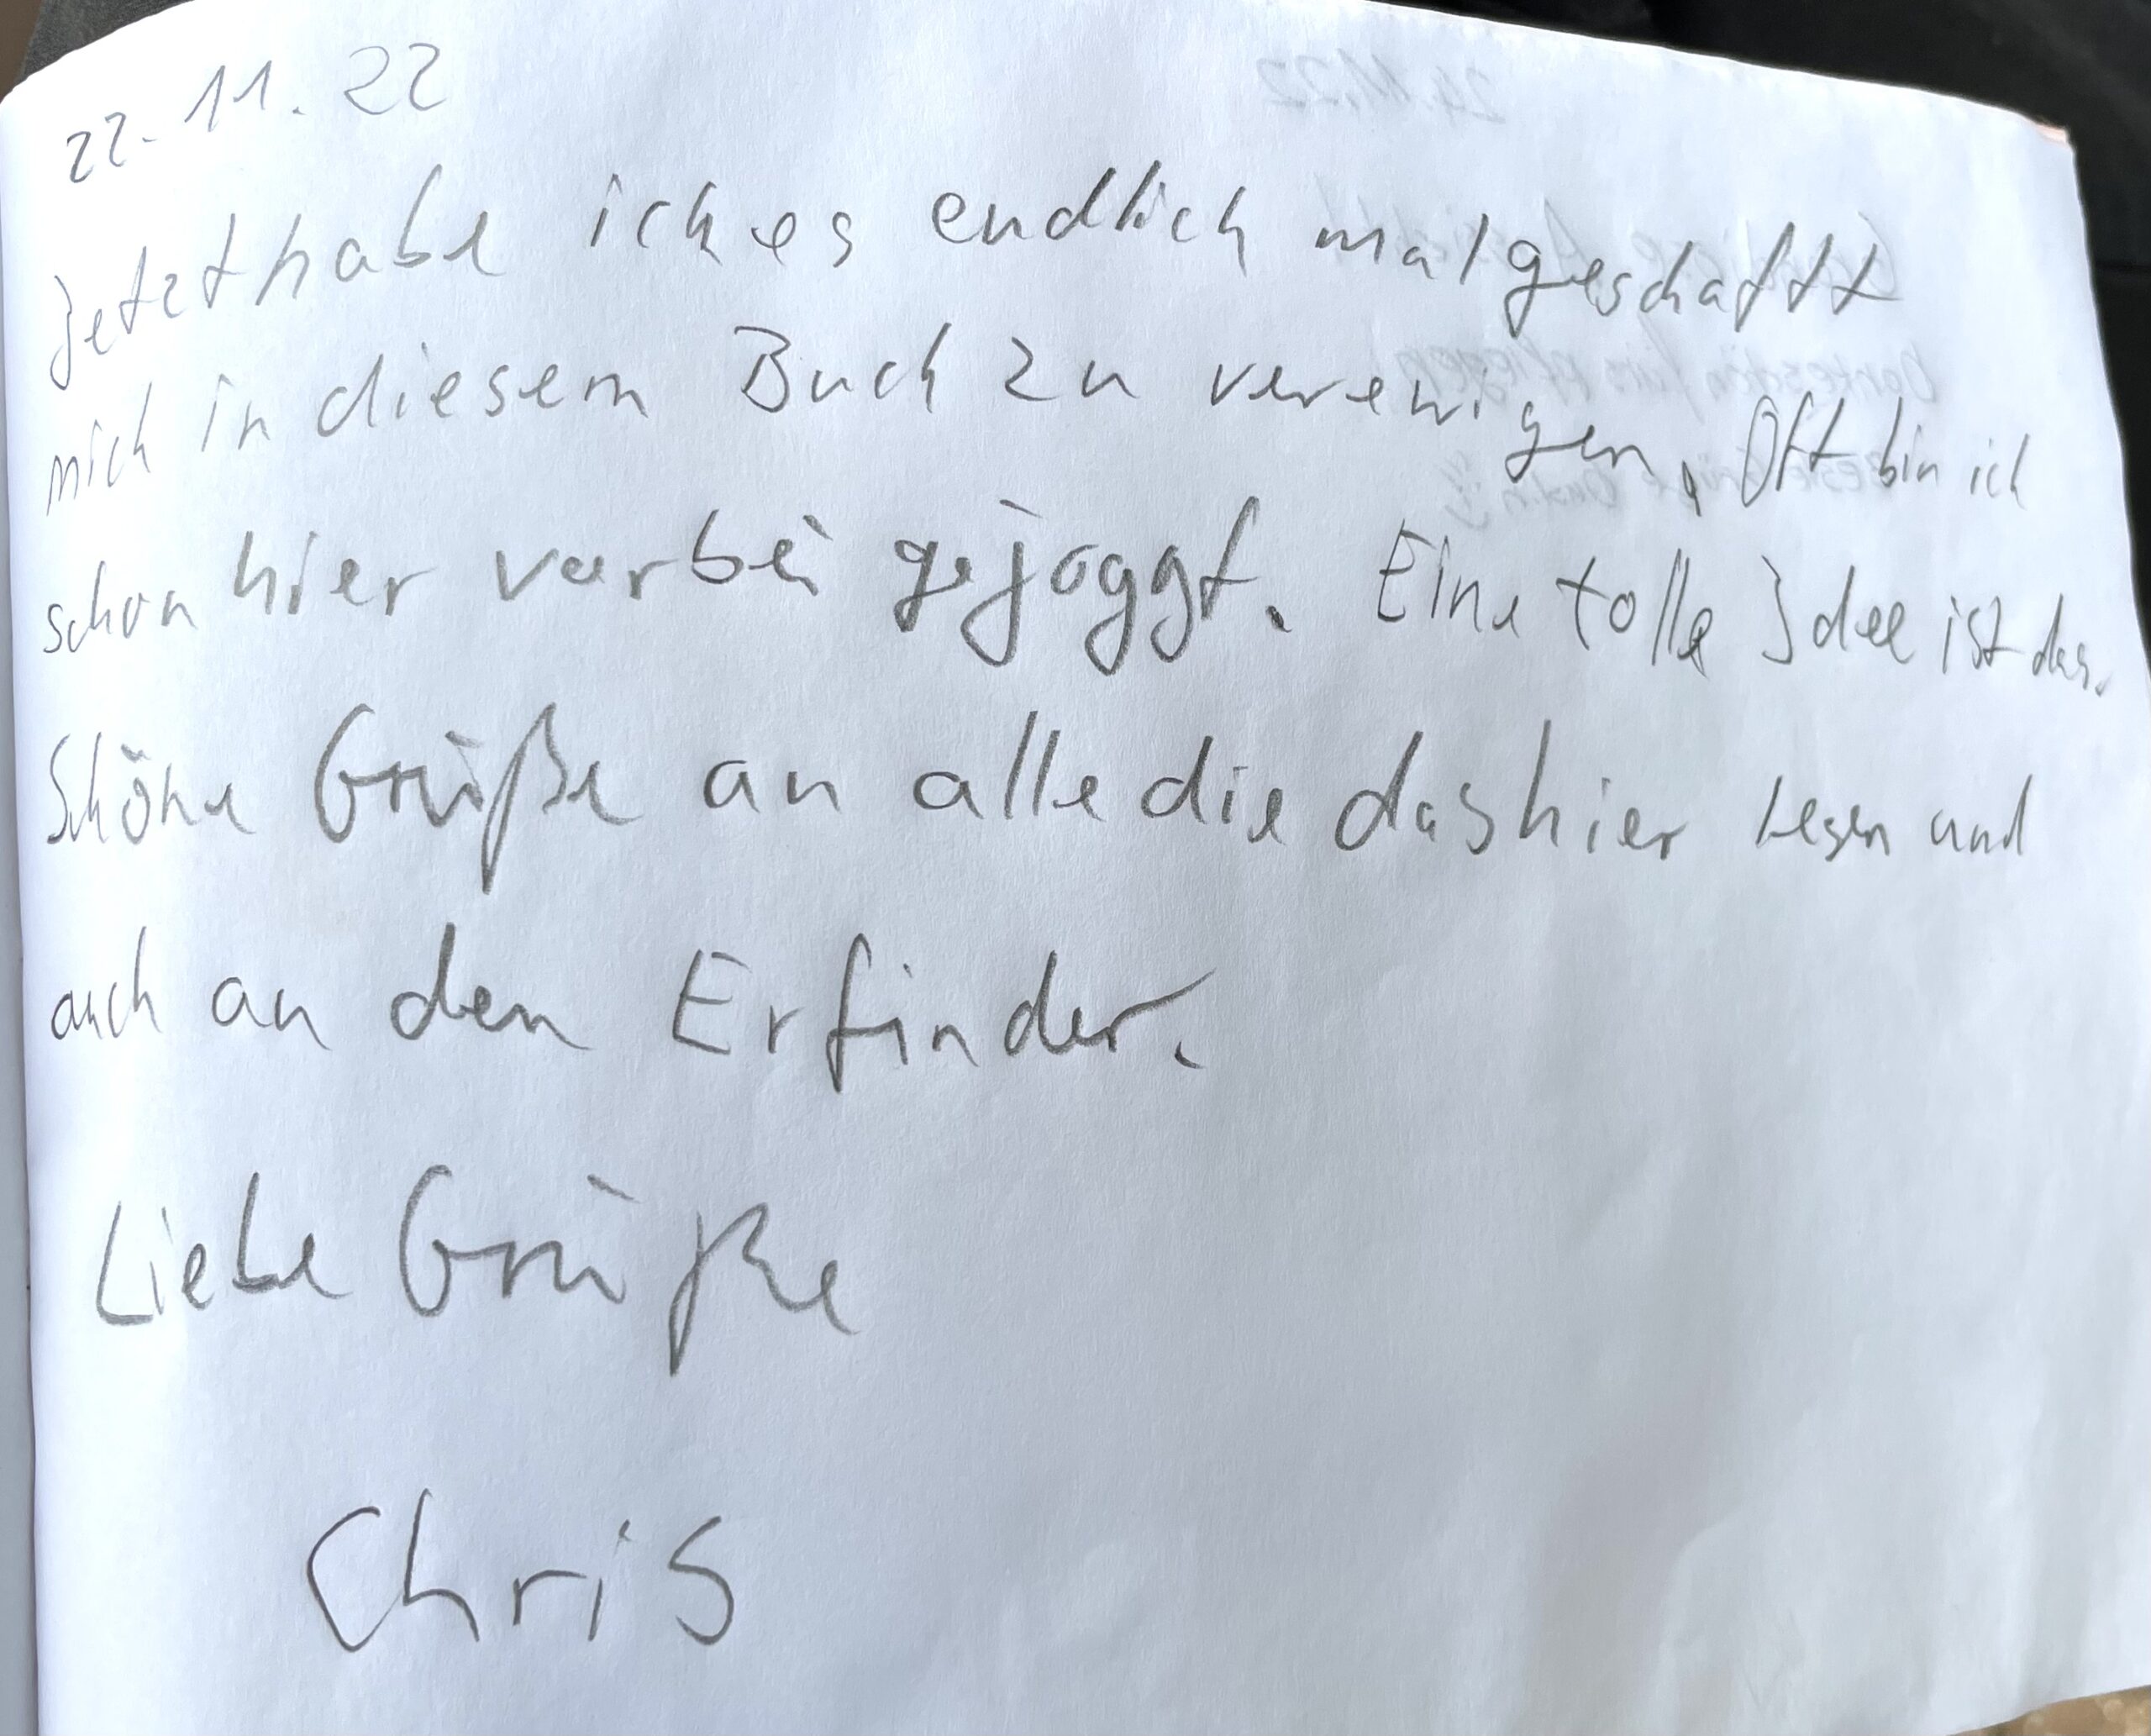 22.11.22
Jetzt habe ich es endlich mal geschafft
mich in diesem Buch zu verewigen. Oft bin ich
schon hier vorbei gejoggt. Eine tolle Idee ist das.
Schöne Grüße an alle die das hier lesen und
auch an den Erfinder.
Liebe Grüße
Chris
24.11.22